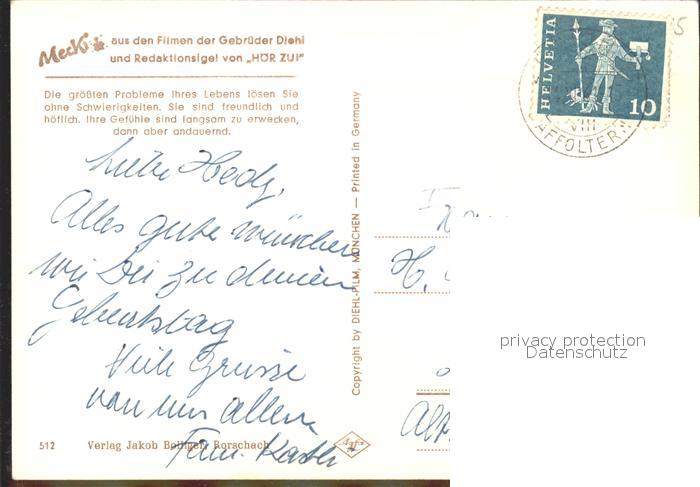 Mecki aus den Filmen der Gebrüder Diehl
und Redaktionsigel von „HÖR ZU!"
Die größten Probleme Ihres Lebens lösen Sie
ohne Schwierigkeiten. Sie sind freundlich und
höflich. Ihre Gefühle sind langsam zu erwecken,
dann aber andauernd.
HELVETIA
10
AFFOLTERN
5
Liebe Hedy,
Alles gute wünschen
wir Dir zu deinem
Geburtstag
Viele Grüsse
von uns allen
Fam.
Copyright by DIEHL-FILM, MÜNCHEN — Printed in Germany
H.
privacy protection
Datenschutz
512 Verlag Jakob Bolliger, Rorschach